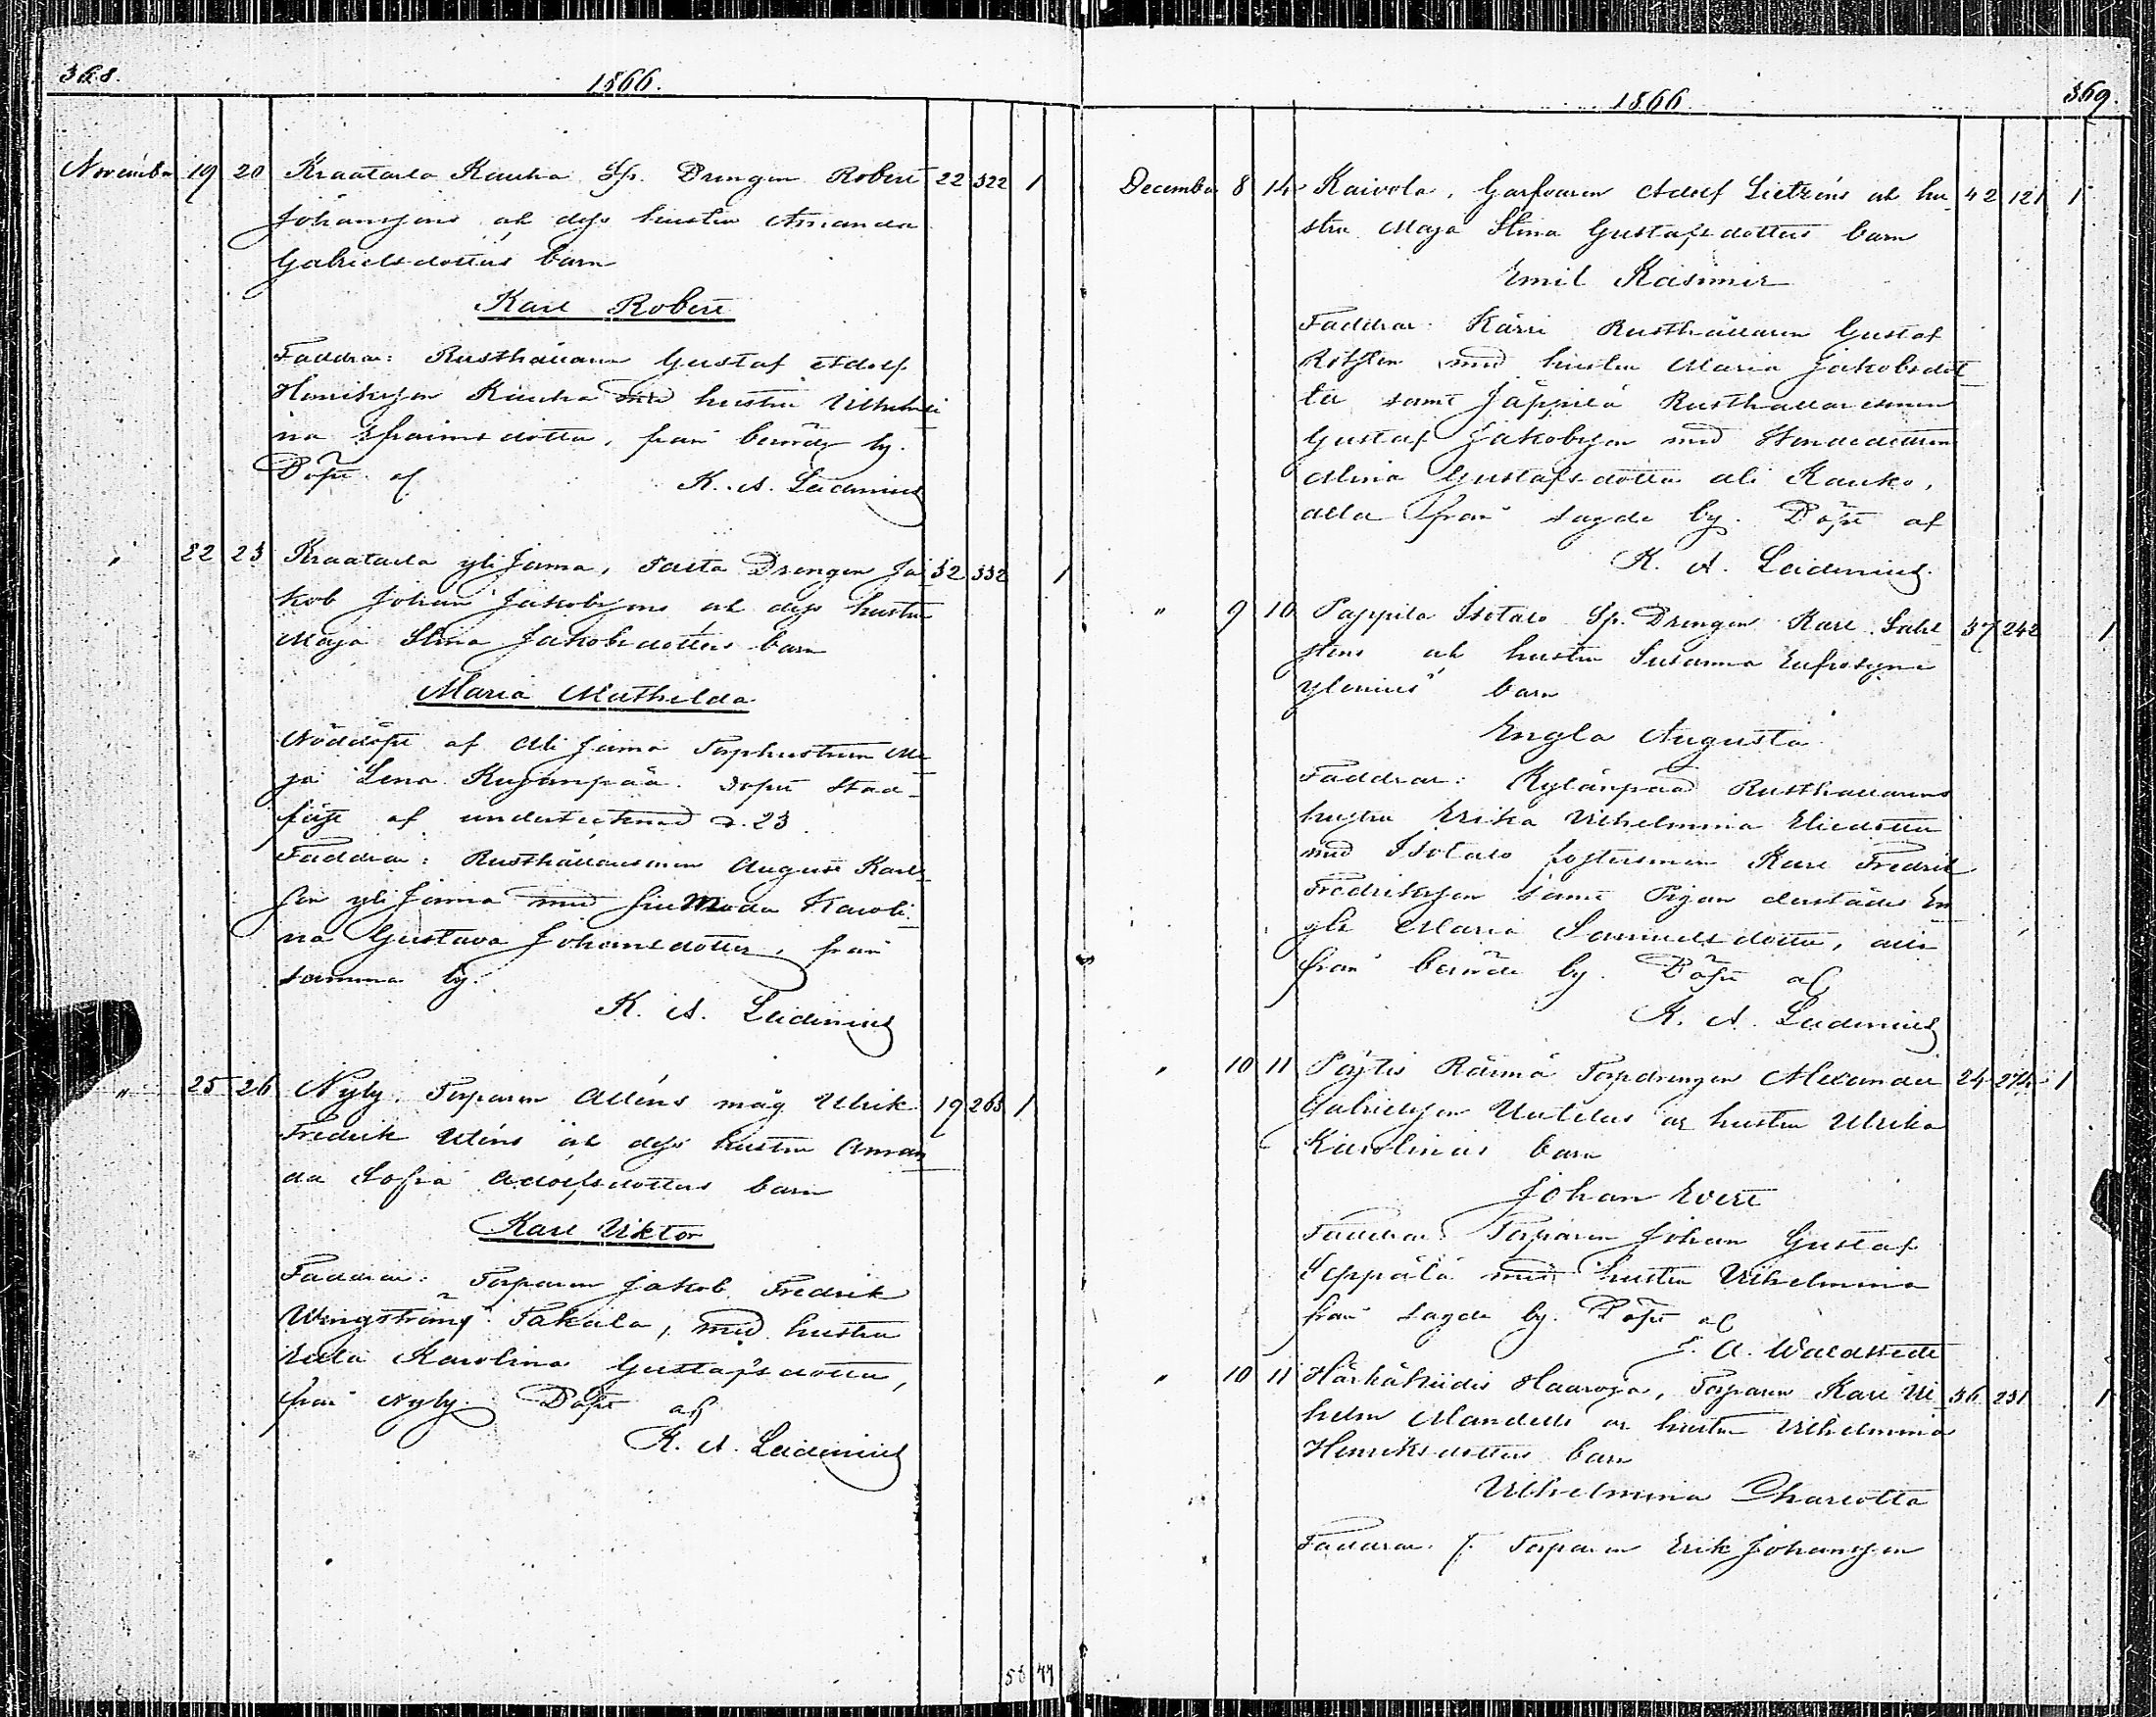 368.
1866.
Novemb. 19 20 Kraatarla Rauha Sp. Drängen Robert 22 322 1
Johanssons och dess hustru Amanda
Gabrielsdotters barn
Karl Robert
Faddrar: Rusthållaren Gustaf Adolf
Henriksson Rauha med hustru Vilhelmi
na Efraimsdotter, från berörde by.
Döpt af K. A. Leidenius
" 22 23 Kraatarla yli Jama, Drängen Ja 32 332 1
kob Johan Jakobssons och dess hustru
Maja Stina Jakobsdotters barn
Maria Mathilda
Nöddöpt af Ali Jama Torphustrun Ma
ja Lena Kujanpää. Dopet stad-
fäst af undertecknad d. 23
Faddrar: Rusthållaresonen August Karls
son yli Jama med sin Moder Karoli
na Gustava Johansdotter, från
samma by.
K. A. Leidenius
" 25 26 Nyby Torparen Alléns måg Ulrik 19 265 1
Fredrik Uténs och dess hustru Aman
da Sofia Adolfsdotters barn
Karl Viktor
Faddrar: Torparen Jakob Fredrik
Wingström Takala, med hustru
Eula Karolina Gustafsdotter,
från Nyby. Döpt af
K. A. Leidenius
58 44
1866
369.
December 8 14 Kaivola, Garfvaren Adolf Lietzéns och hu 42 121 1
stru Maja Stina Gustafsdotters barn
Emil Kasimir
Faddrar: Kärri Rusthållaren Gustaf
med hustru Maria Jakobsdot
ter samt Jäppilä Rusthållaresonen
Gustaf Jakobsson med
Mina Gustafsdotter ali Kauko,
alla från sagde by. Döpt af
K. A. Leidenius.
" 9 10 Pappila Isotalo Sp. Drängen Karl Sahl 37 242 1
stens och hustru Susanna Eufrosyne
Ylenius' barn
Engla Augusta
Faddrar: Kylänpää Rusthållarens
hustru Erika Vilhelmina Eliedotter
med Isotalo fostersonen Karl Fredrik
Fredriksson samt Pigan derstädes En
gla Maria Samuelsdotter, alla
från berörde by. Döpt af
K. A. Leidenius
" 10 11 Pöytis Räimä Torpdrängen Alexander 24 274 1
Gabrielsson Uutelas o. hustru Ulrika
Karolinas barn
Johan Evert
Faddrar: Torparen Johan Gustaf
Seppälä med hustru Vilhelmina
från sagde by. Döpt af
E. A. Waldstedt
" 10 11 Härkäkiidis Haaroja, Torparen Karl Vil 36 231 1
helm Mandells o. hustru Vilhelmina
Henriksdotters barn
Vilhelmina Charlotta
Faddrar: f. Torparen Erik Johansson